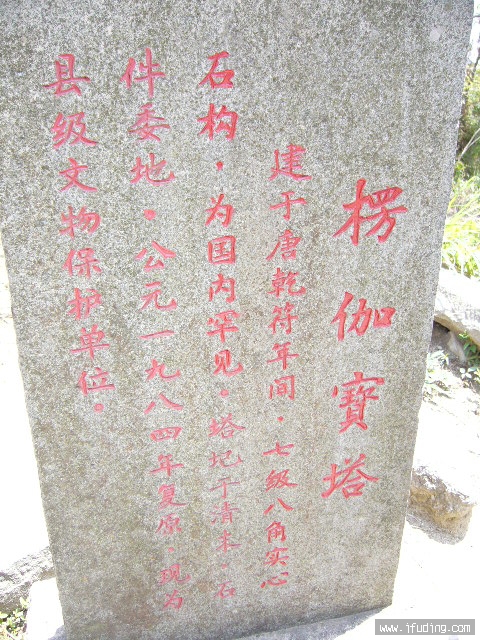 楞伽寶塔
建于唐乾符年间，七级八角实心
石构，为国内罕见。塔圮于清末，石
件委地。公元一九八四年复原，现为
县级文物保护单位。
www.ifuding.com